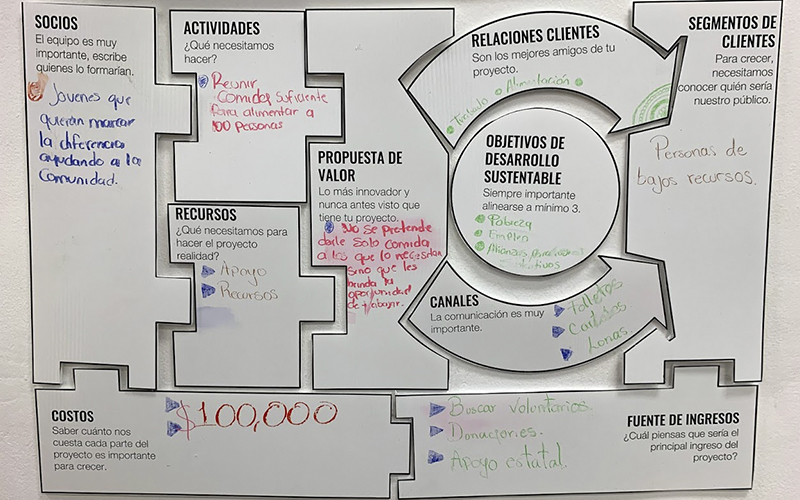 SOCIOS
El equipo es muy
importante, escribe
quienes lo formarían.
Jovenes que
quieran marcar
la diferencia
ayudando a la
Comunidad.
ACTIVIDADES
¿Qué necesitamos
hacer?
Reunir
Comida suficiente
para alimentar a
100 personas
RECURSOS
¿Qué necesitamos para
hacer el proyecto
realidad?
Apoyo
Recursos
PROPUESTA DE
VALOR
Lo más innovador y
nunca antes visto que
tiene tu proyecto.
No se pretende
darle solo comida
a los que lo necesitan
sino que les
brinda la
oportunidad
de trabajar.
RELACIONES CLIENTES
Son los mejores amigos de tu
proyecto.
Trabajo
Alimentación
OBJETIVOS DE
DESARROLLO
SUSTENTABLE
Siempre importante
alinearse a mínimo 3.
Pobreza
Empleo
Alianzas
CANALES
La comunicación es muy
importante.
Folletos
Carteles
Lonas.
SEGMENTOS DE
CLIENTES
Para crecer,
necesitamos
conocer quién sería
nuestro público.
Personas de
bajos recursos.
COSTOS
Saber cuánto nos
cuesta cada parte del
proyecto es importante
para crecer.
$100,000
Buscar voluntarios.
Donaciones.
Apoyo estatal.
FUENTE DE INGRESOS
¿Cuál piensas que sería el
principal ingreso del
proyecto?